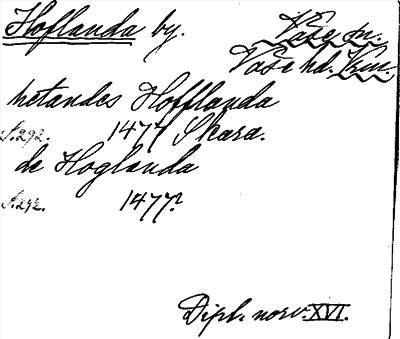 Hoflanda by. Vase sn.
Vase hd. Vrm.
hetandes Hofflanda
S. 292. 1477 Skara.
de Hoglanda
S. 292. 1477?
Dipl. norv. XVI.